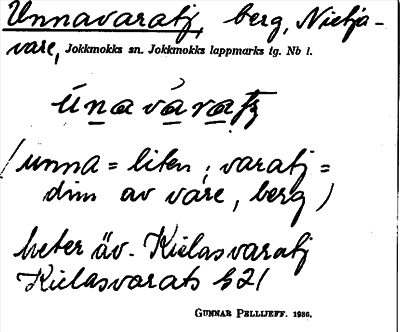 Unnavaratj, berg, Nietja-
vare, Jokkmokks sn. Jokkmokks lappmarks tg. Nb l.
únavàratj
(unna = liten; varatj =
dim av váre, berg)
heter äv. Kielasvaratj
Kielasvarats b21
GUNNAR PELLIJEFF. 1936.